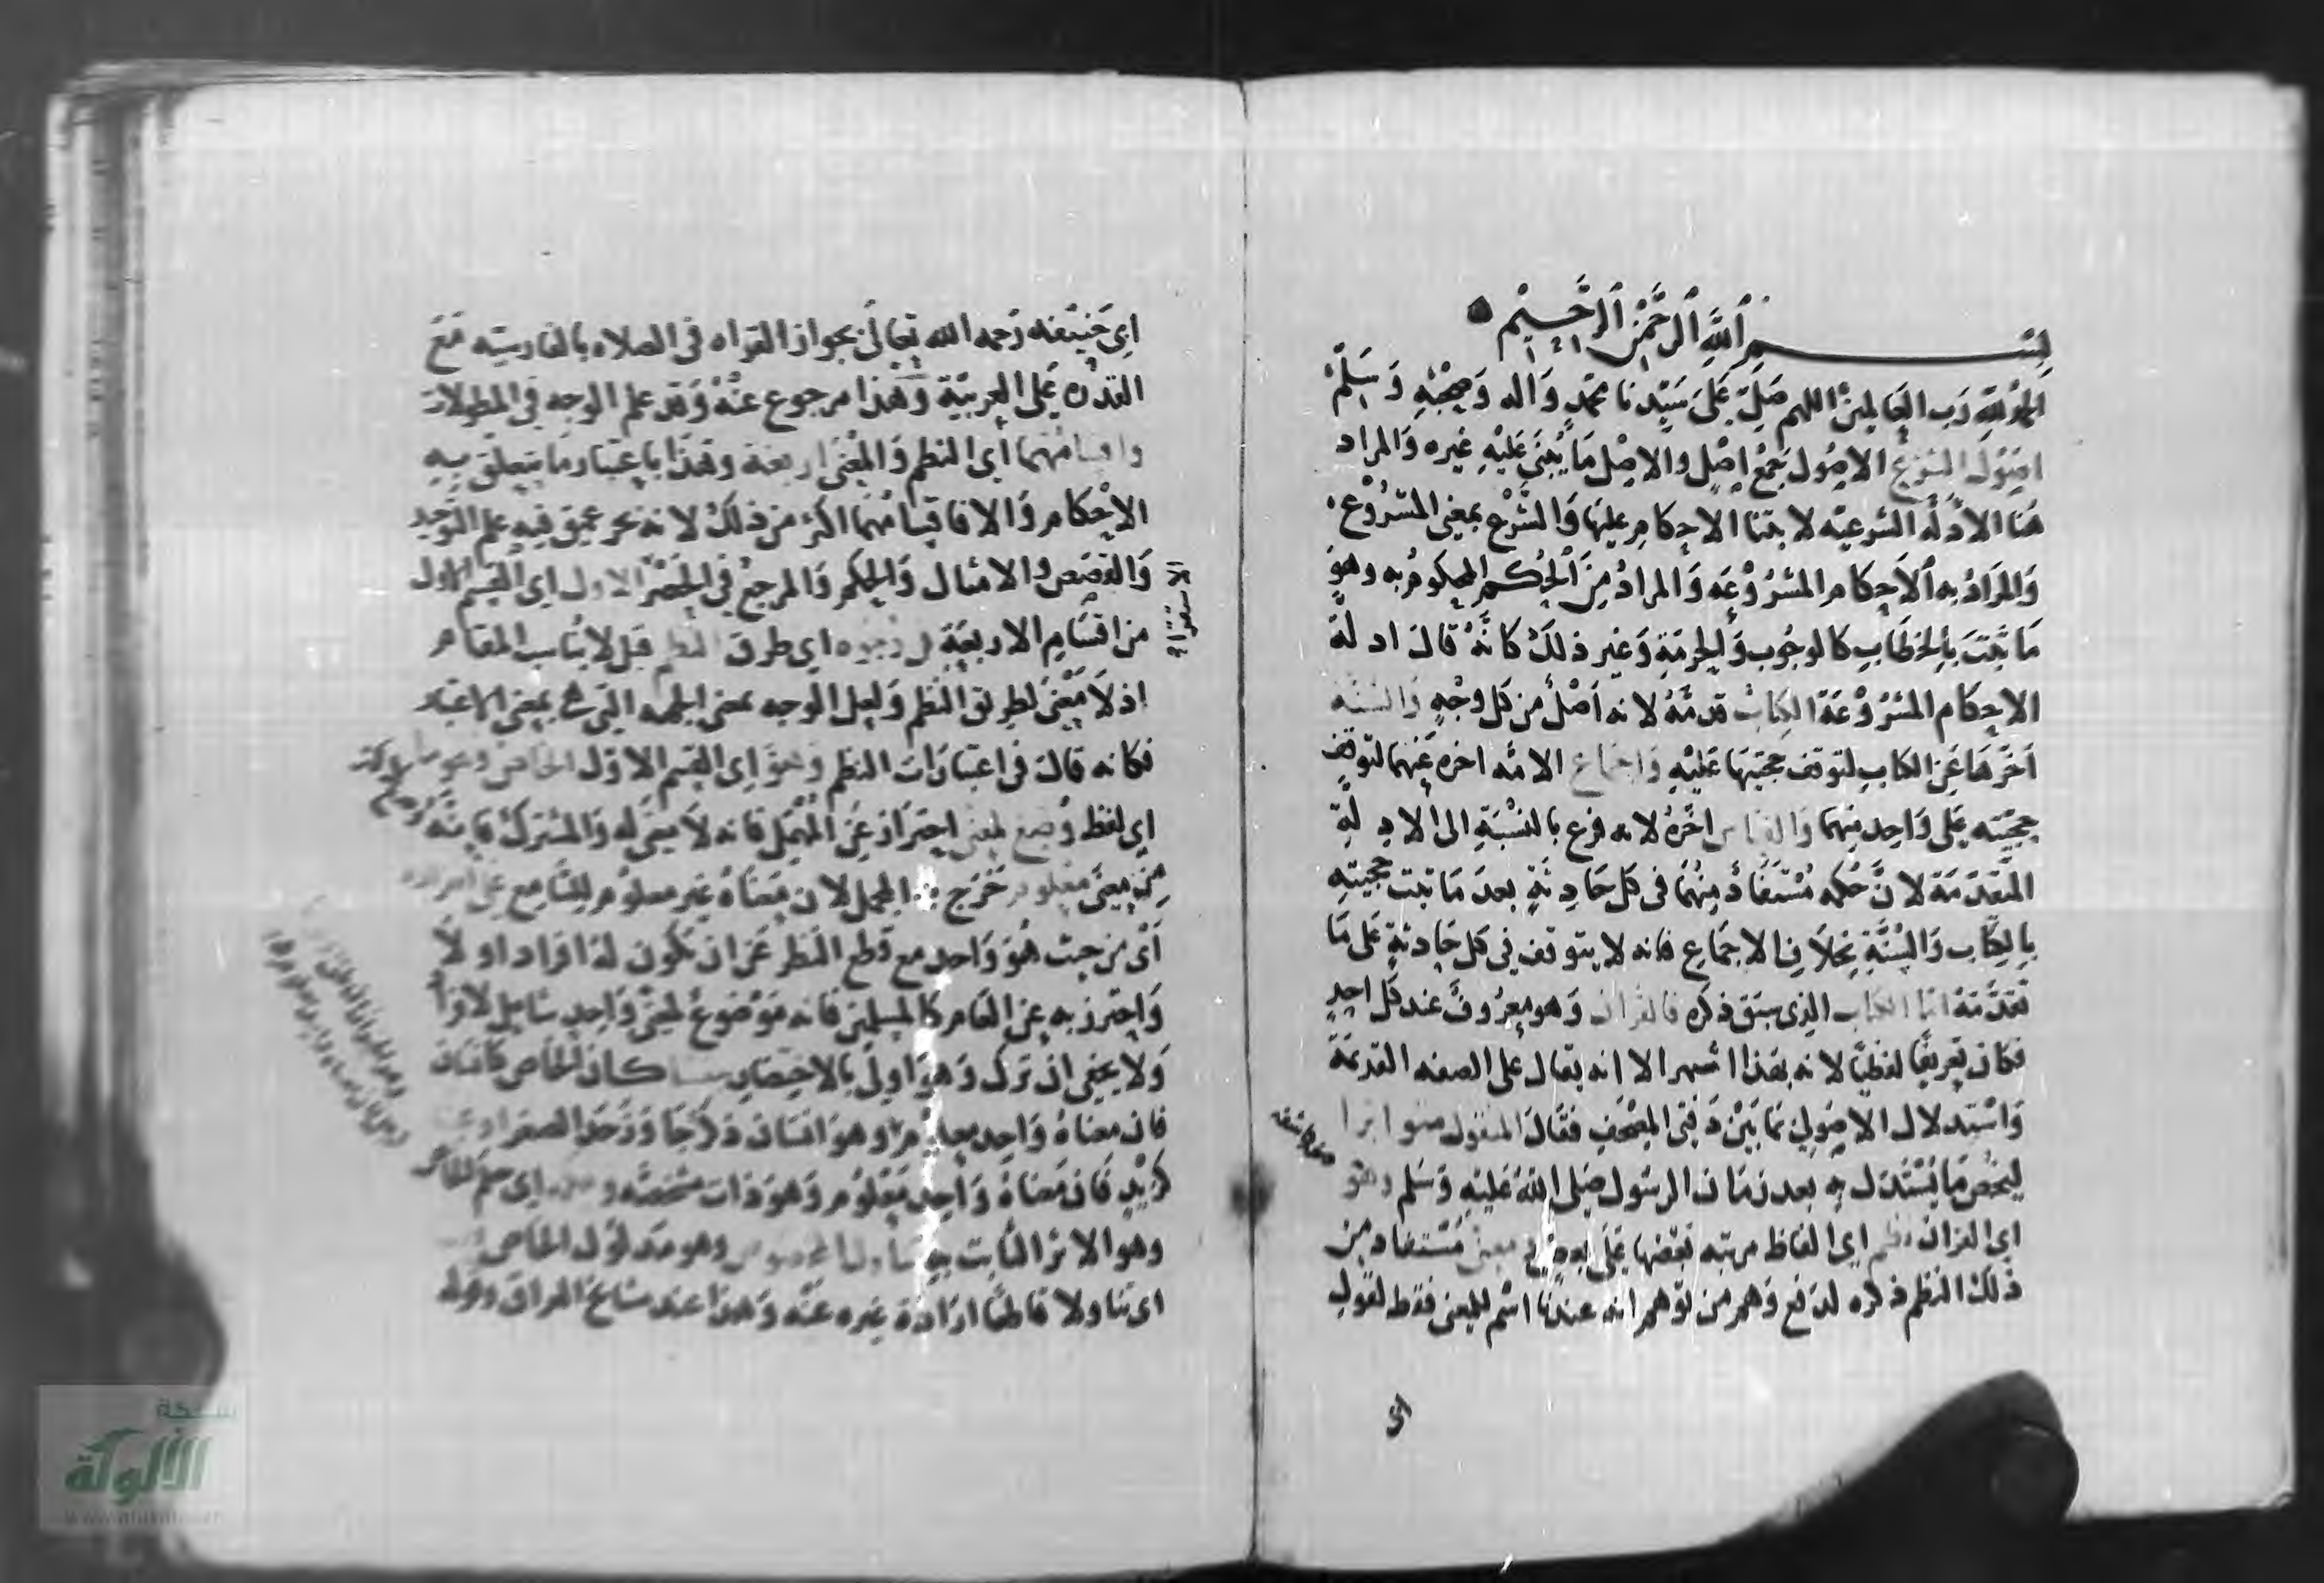 بسم الله الرحمن الرحيم
الحمد لله رب العالمين اللهم صل على سيدنا محمد واله وصحبه وسلم
اصول الشرع الاصول جمع اصل والاصل ما يبنى عليه غيره والمراد
هنا الادلة الشرعيه لابتنا الاحكام عليها والشرع بمعنى المشروع
والمراد به الاحكام المشروعه والمراد من الحكم المحكوم به وهو
ما ثبت بالخطاب كالوجوب والحرمة وغير ذلك كانه قال ادلة
الاحكام المشروعة الكتاب قدمه لانه اصل من كل وجه والسنه
اخرها عن الكتاب لتوقف حجيتها عليه واجماع الامه اخره عنهما لتوقف
حجيته على واحد منهما والقياس اخره لانه فرع بالنسبة الى الادلة
المتقدمة لان حكمه مستفاد منها فى كل حادثة بعد ما ثبت حجيته
بالكتاب والسنة بخلاف الاجماع فانه لا يتوقف فى كل حادثة على ما
تقدمة اما الكتاب الذى سبق ذكره فالقران وهو معروف عند كل احد
فكان تعريفا لفظيا لانه بهذا اشهر الا انه يقال على الصفه القديمة
واستدلال الاصولى بما بين دفتى المصحف فقال المنقول متواترا
ليخص ما يستدل به بعد زمان الرسول صلى الله عليه وسلم وهو
اى القران نظم اى الفاظ مرتبه بعضها على بعض ومعنى مستفاد من
ذلك النظم ذكره لدفع وهم من توهم انه عندنا اسم للمعنى فقط لقول
ابى حنيفه رحمه الله تعالى بجواز القراه فى الصلاه بالفارسيه مع
القدره على العربية وهذا مرجوع عنه وقد علم الوجه فى المطولات
واقسامهما اى النظم والمعنى اربعة وهذا باعتبار ما يتعلق به
الاحكام والا فاقسامهما اكثر من ذلك لانه بحر عميق فيه علم التوحيد
والقصص والامثال والحكم والمرجع فى الحصر الاول اى القسم الاول
الاستقراء
من اقسام الاربعة فى وجوه اى طرق النظم قيل لا يناسب المقام
اذ لا معنى لطريق النظم ولعل الوجه بمعنى الجهه التى هى بمعنى الاعتبار
فكانه قال فى اعتبارات النظم وهو اى القسم الاول الخاص وهو ما
اى لفظ وضع لمعنى احتراز عن المهمل فانه لا معنى له والمشترك فانه
من معنى معلوم خرج به المجمل لان معناه غير معلوم للسامع على انفراده
اى من حيث هو واحد مع قطع النظر عن ان تكون له افراد او لا
واحترز به عن العام كالمسلمين فانه موضوع لمعنى واحد شامل لافراد
ولا يخفى ان ترك وهو اولى بالاختصار سوا كان الخاص كانسان
فان معناه واحد معلوم وهو انسان ذكر جاوز حد الصغر او
كزيد فان معناه واحد معلوم وهو ذات مشخصه وحكمه اى حكم الخاص
وهو الاثر الثابت به تناول المخصوص وهو مدلول الخاص
اى تناولا قاطعا ارادة غيره عنه وهذا عند مشايخ العراق
شبكة
الألوكة